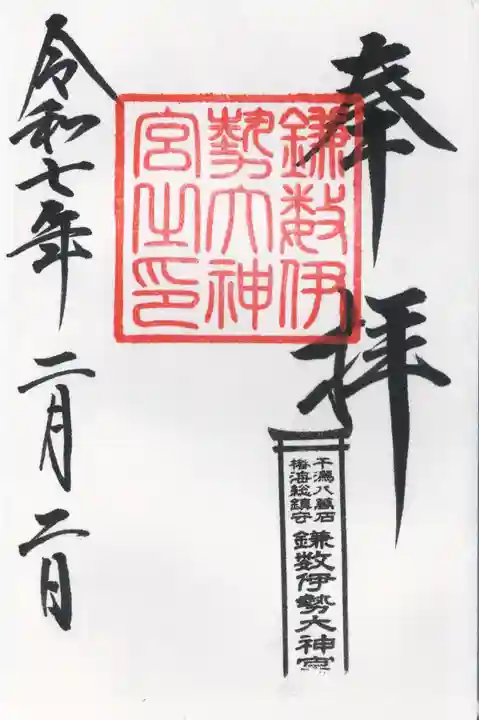 奉拝
鎌数伊
勢大神
宮之印
干潟八萬石
椿海総鎮守
鎌数伊勢大神宮
令和七年二月二日